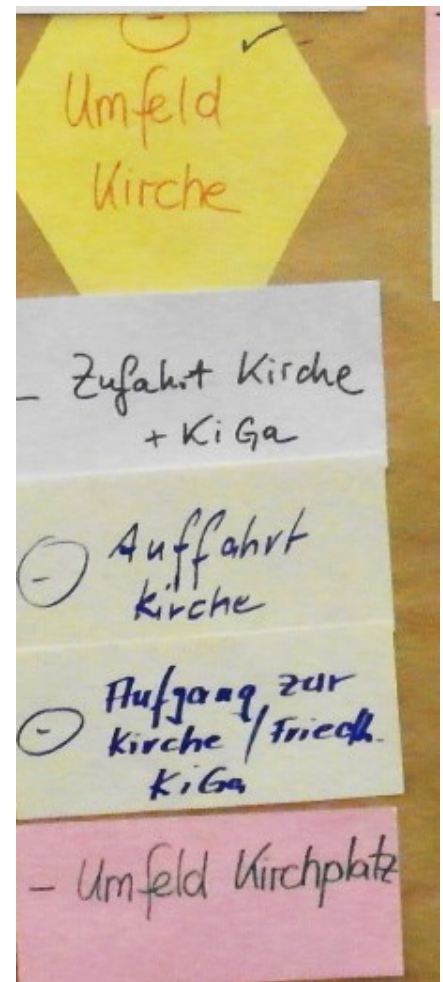 Umfeld
Kirche
- Zufahrt Kirche
+ KiGa
- Auffahrt
Kirche
- Aufgang zur
Kirche / Friedh.
KiGa
- Umfeld Kirchplatz